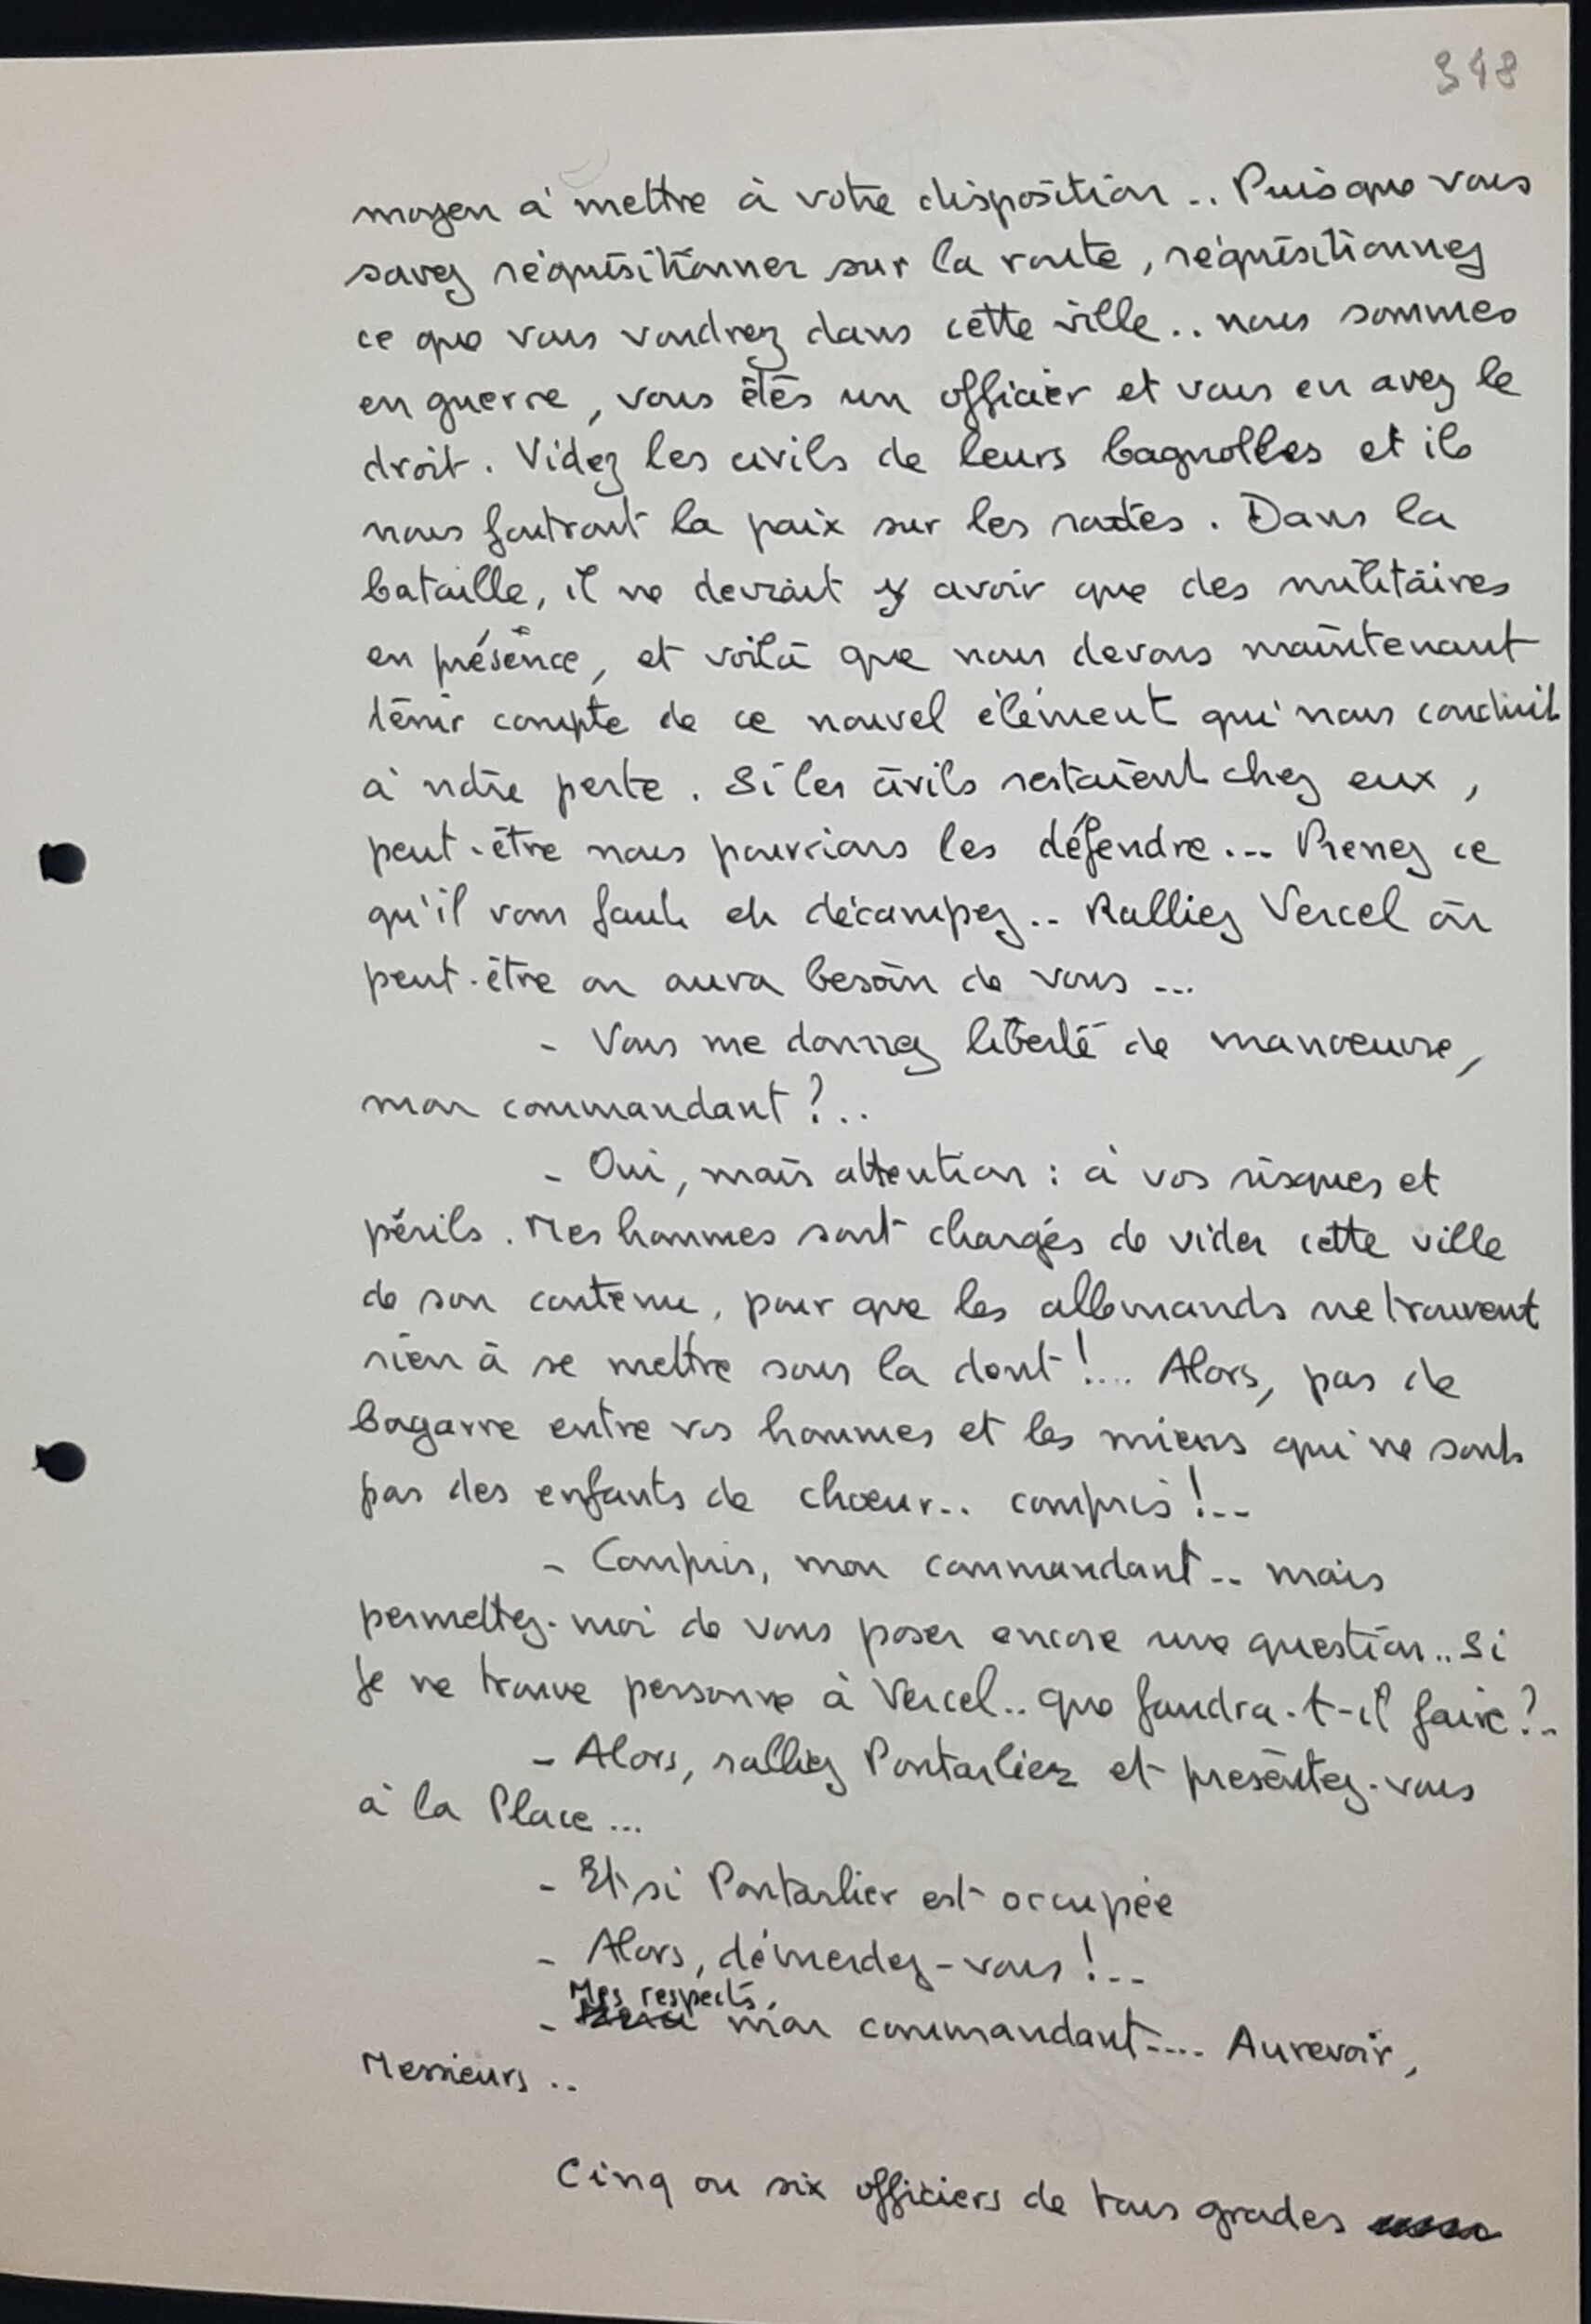 348
moyen à mettre à votre disposition .. Puisque vous
savez réquisitionner sur la route, réquisitionnez
ce que vous voudrez dans cette ville .. nous sommes
en guerre, vous êtes un officier et vous en avez le
droit. Videz les civils de leurs bagnolles et ils
nous foutront la paix sur les routes. Dans la
bataille, il ne devrait y avoir que des militaires
en présence, et voilà que nous devons maintenant
tenir compte de ce nouvel élément qui nous conduit
à notre perte. Si les civils restaient chez eux,
peut-être nous pourrions les défendre ... Prenez ce
qu'il vous faut et décampez .. Ralliez Vercel où
peut-être on aura besoin de vous ...
- Vous me donnez liberté de manoeuvre,
mon commandant ? ..
- Oui, mais attention : à vos risques et
périls. Mes hommes sont chargés de vider cette ville
de son contenu, pour que les allemands ne trouvent
rien à se mettre sous la dent ! ... Alors, pas de
bagarre entre vos hommes et les miens qui ne sont
pas des enfants de choeur .. compris ! ..
- Compris, mon commandant .. mais
permettez-moi de vous poser encore une question .. Si
je ne trouve personne à Vercel .. que faudra-t-il faire ? ..
- Alors, ralliez Pontarlier et présentez-vous
à la Place ...
- Et si Pontarlier est occupée
- Alors, démerdez-vous ! ..
Mes respects,
- mon commandant .... Aurevoir,
Messieurs ..
Cinq ou six officiers de tous grades